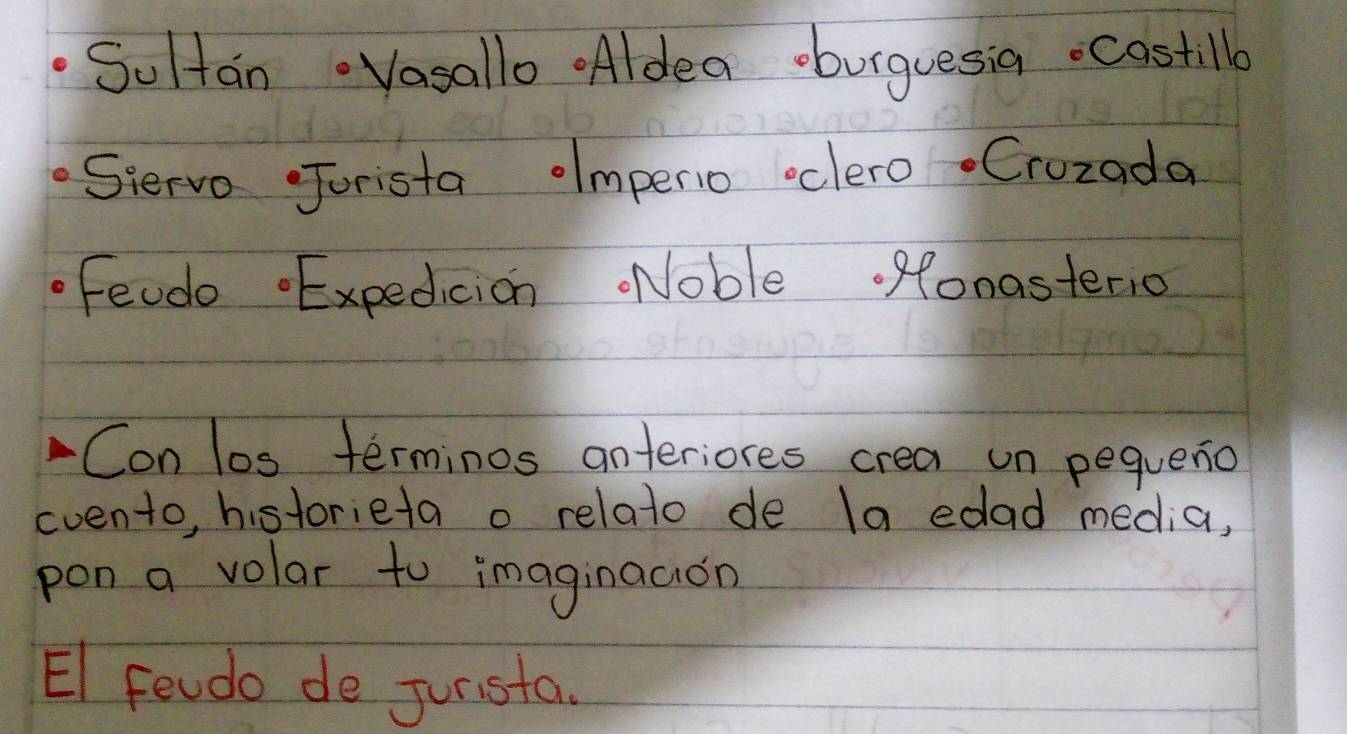 • Sultán • Vasallo • Aldea • burguesia • castillo
• Siervo • Jurista • Imperio • clero • Cruzada
• Feudo • Expedición • Noble • Monasterio
Con los términos anteriores crea un pequeño
cuento, historieta o relato de la edad media,
pon a volar tu imaginación
El Feudo de Jurista.